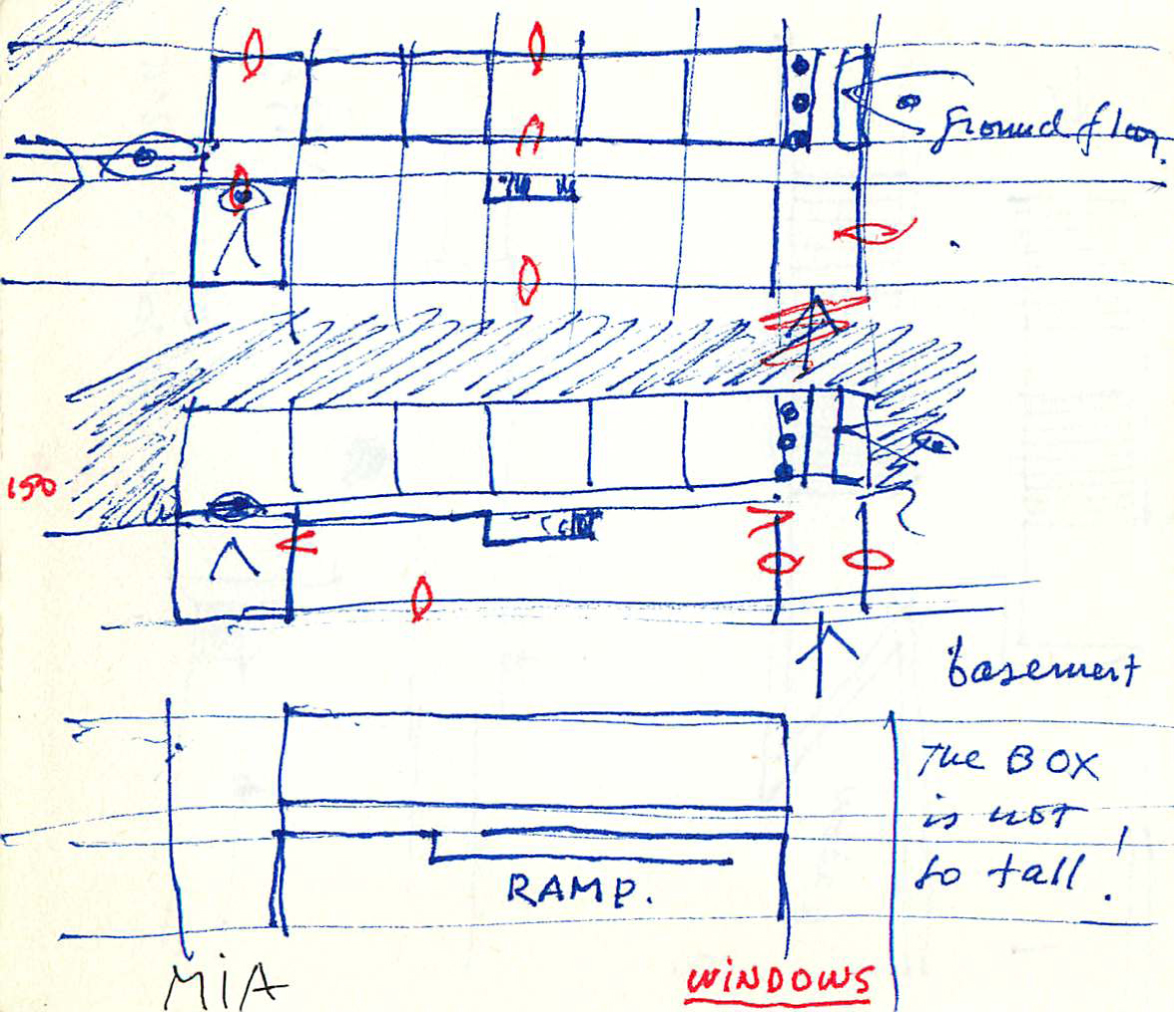 Ground floor.
150
basement
The BOX
is not
so tall!
RAMP.
MIA
WINDOWS